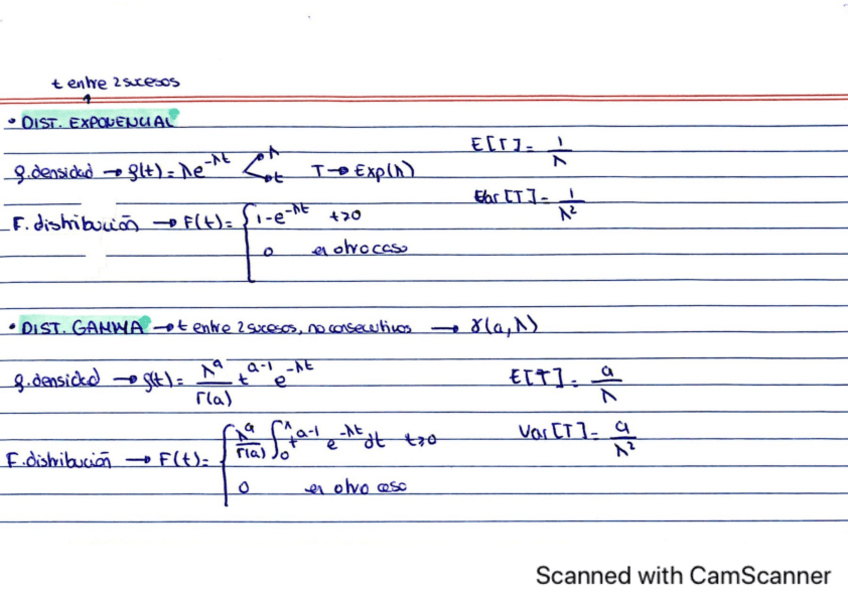 t entre 2 sucesos
• DIST. EXPONENCIAL
f.densidad → f(t) = λe^-λt < λ t T → Exp(λ) E[T] = 1/λ
Var[T] = 1/λ²
F. distribución → F(t) = { 1-e^-λt t>0
0 en otro caso
• DIST. GAMMA → t entre 2 sucesos, no consecutivos → γ(a,λ)
f.densidad → f(t) = λ^a/Γ(a) t^a-1 e^-λt E[T] = a/λ
F.distribución → F(t) = { λ^a/Γ(a) ∫₀^λ t^a-1 e^-λt dt t>0 Var[T] = a/λ²
0 en otro caso
Scanned with CamScanner